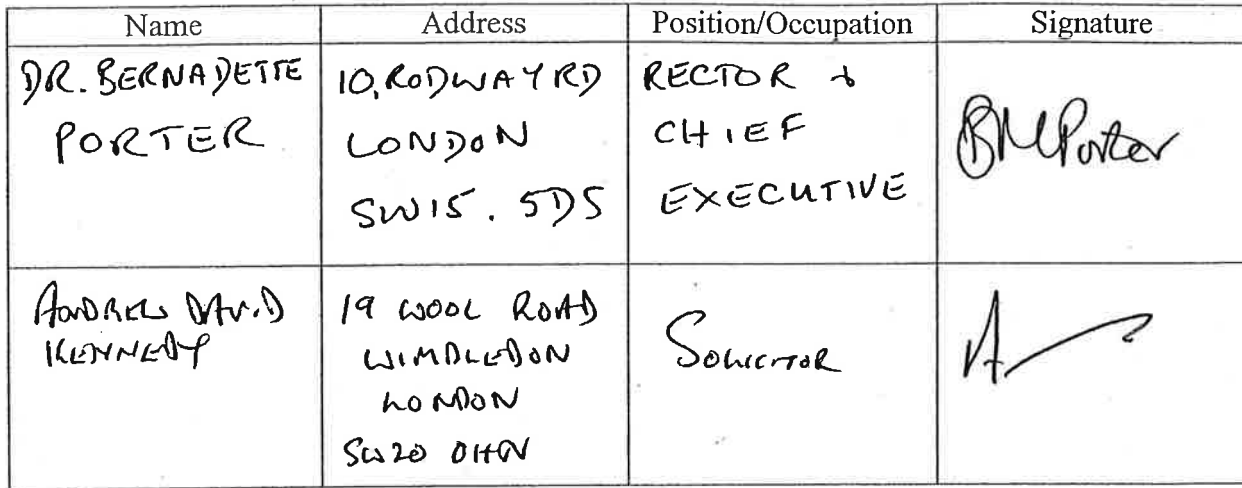 Name Address Position/Occupation Signature
DR. BERNADETTE
PORTER
10, RODWAY RD
LONDON
SW15. 5DS
RECTOR &
CHIEF
EXECUTIVE
BM Porter
ANDREW DAVID
KENNEDY
19 WOOL ROAD
WIMBLEDON
LONDON
SW20 0HN
SOLICITOR